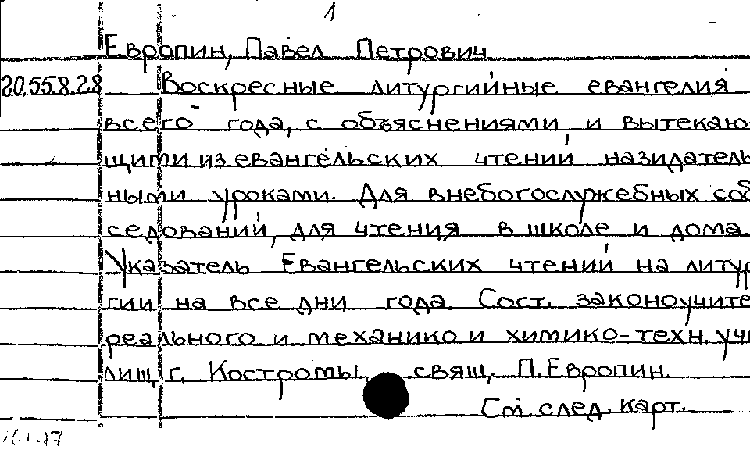 1
Европин, Павел Петрович
20.55.8.28 Воскресные литургийные евангелия
всего года, с объяснениями и вытекаю-
щими из евангельских чтений назидатель-
ными уроками. Для внебогослужебных соб
седований, для чтения в школе и дома.
Указатель Евангельских чтений на литур
гии на все дни года. Сост. законоучите
реального и механико и химико-техн. учи
лищ г. Костромы, свящ. П. Европин.
См. след. карт.